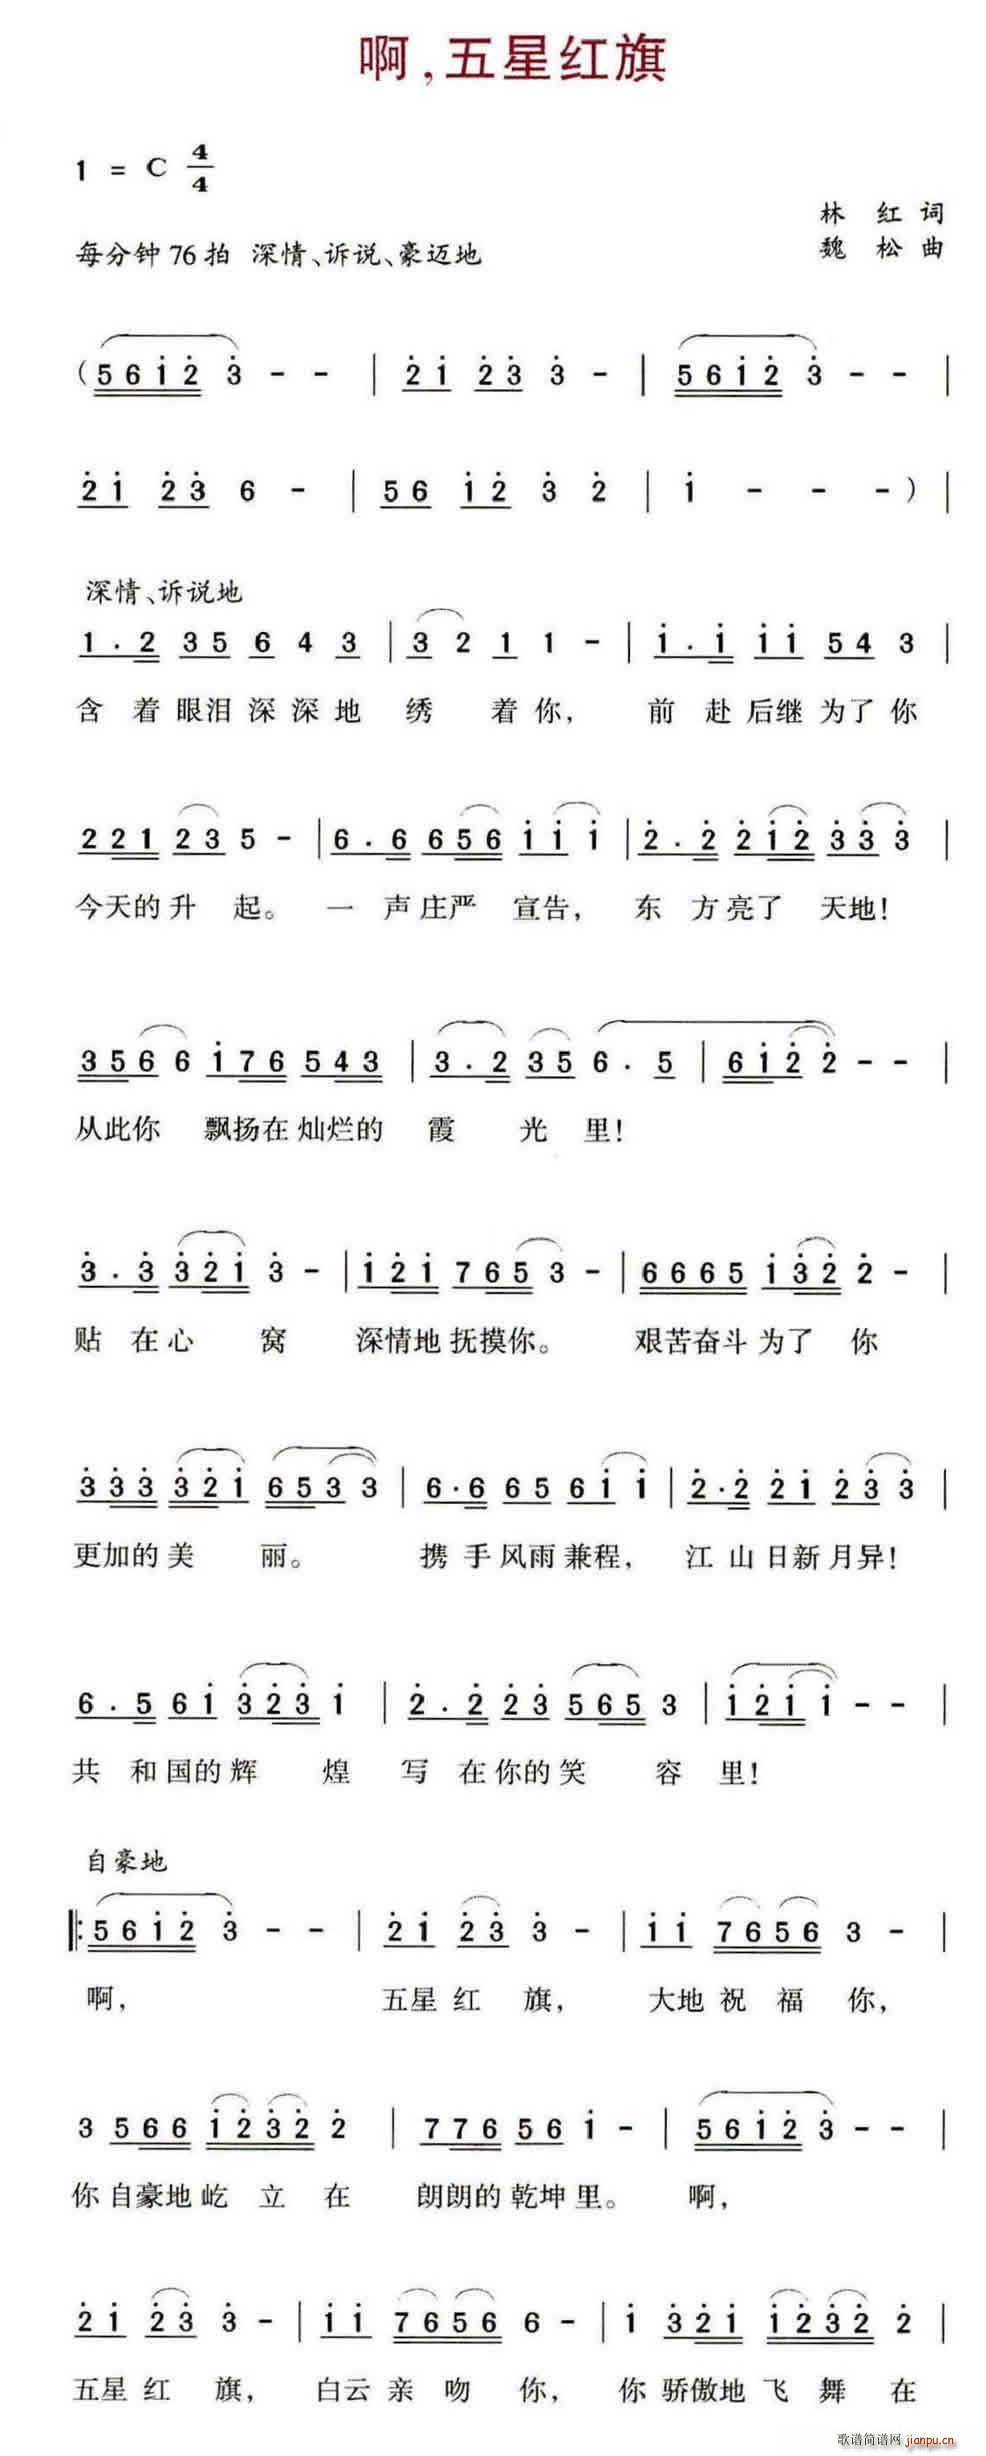 啊,五星红旗
1 = C 4/4
林 红 词
每分钟 76 拍 深情、诉说、豪迈地
魏 松 曲
(5 6 i̇ 2̇ 3̇ - - | 2̇ i̇ 2̇ 3̇ 3̇ - | 5 6 i̇ 2̇ 3̇ - - |
2̇ i̇ 2̇ 3̇ 6 - | 5 6 i̇ 2̇ 3̇ 2̇ | i̇ - - - ) |
深情、诉说地
1 . 2 3 5 6 4 3 | 3 2 1 1 - | i̇ . i̇ i̇ i̇ 5 4 3 |
含 着 眼泪 深 深 地 绣 着 你, 前 赴 后继 为了 你
2 2 1 2 3 5 - | 6 . 6 6 5 6 i̇ i̇ i̇ | 2̇ . 2̇ 2̇ i̇ 2̇ 3̇ 3̇ 3̇ |
今天的 升 起。 一 声 庄严 宣告, 东 方 亮了 天地!
3 5 6 6 i̇ 7 6 5 4 3 | 3 . 2 3 5 6 . 5 | 6 i̇ 2̇ 2̇ - - |
从此你 飘扬在 灿烂的 霞 光 里!
3̇ . 3̇ 3̇ 2̇ i̇ 3̇ - | i̇ 2̇ i̇ 7 6 5 3 - | 6 6 6 5 i̇ 3̇ 2̇ 2̇ - |
贴 在 心 窝 深情地 抚摸你。 艰苦奋斗 为了 你
3̇ 3̇ 3̇ 3̇ 2̇ i̇ 6 5 3 3 | 6 . 6 6 5 6 i̇ i̇ | 2̇ . 2̇ 2̇ i̇ 2̇ 3̇ 3̇ |
更加的 美 丽。 携 手 风雨 兼程, 江 山 日新 月异!
6 . 5 6 i̇ 3̇ 2̇ 3̇ i̇ | 2̇ . 2̇ 2̇ 3̇ 5 6 5 3 | i̇ 2̇ i̇ i̇ - - |
共 和 国的 辉 煌 写 在 你的 笑 容 里!
自豪地
‖: 5 6 i̇ 2̇ 3̇ - - | 2̇ i̇ 2̇ 3̇ 3̇ - | i̇ i̇ 7 6 5 6 3 - |
啊, 五星 红 旗, 大地 祝 福 你,
3 5 6 6 i̇ 2̇ 3̇ 2̇ 2̇ | 7 7 6 5 6 i̇ - | 5 6 i̇ 2̇ 3̇ - - |
你 自豪地 屹 立 在 朗朗的 乾坤 里。 啊,
2̇ i̇ 2̇ 3̇ 3̇ - | i̇ i̇ 7 6 5 6 6 - | i̇ 3̇ 2̇ i̇ i̇ 2̇ 3̇ 2̇ 2̇ |
五星 红 旗, 白云 亲 吻 你, 你 骄傲地 飞 舞 在
歌谱简谱网
jianpu.cn